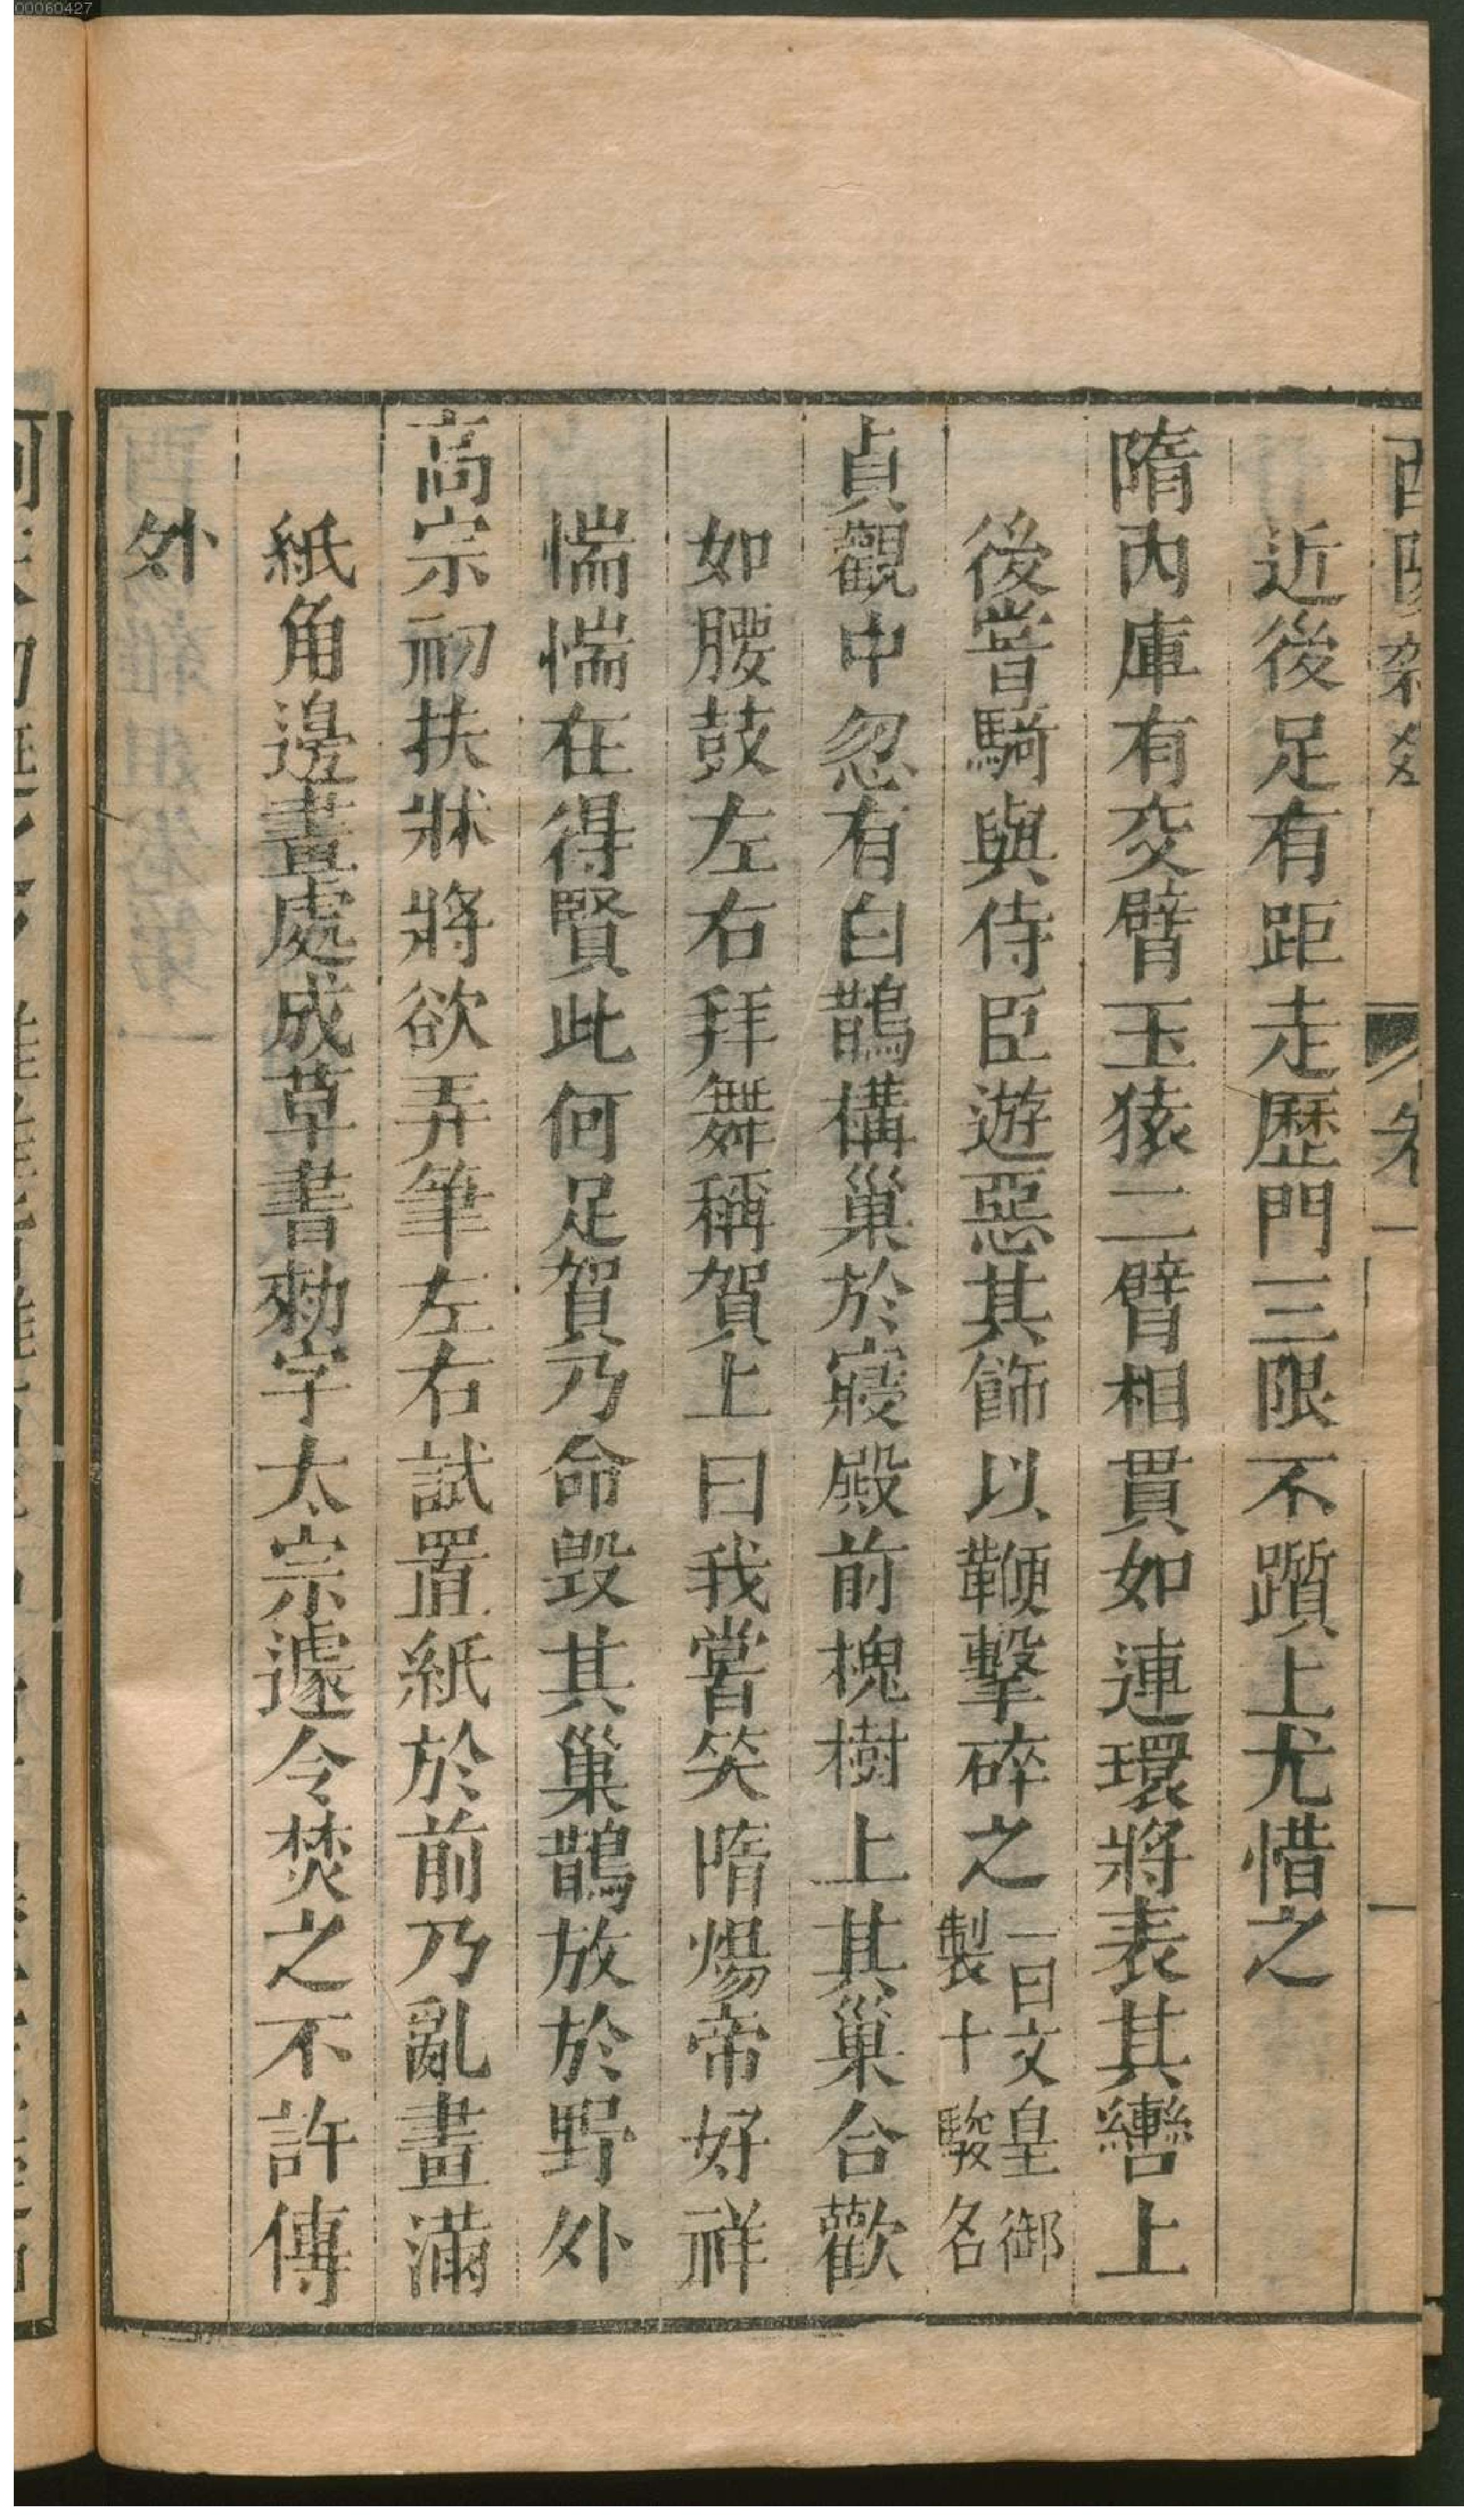 00060427
近後足有距走歷門三限不躓上尤惜之
隋内庫有交臂玉猿二臂相貫如連環將表其轡上
後嘗騎與侍臣遊惡其飾以鞭擊碎之一曰文皇御
製十駿名
貞觀中忽有白鵲構巢於寢殿前槐樹上其巢合歡
如腰鼓左右拜舞稱賀上曰我嘗笑隋煬帝好祥
惴惴在得賢此何足賀乃命毀其巢鵲放於野外
高宗初扶牀將欲弄筆左右試置紙於前乃亂畫滿
紙角邊畫處成草書勑字太宗遽令焚之不許傳
外